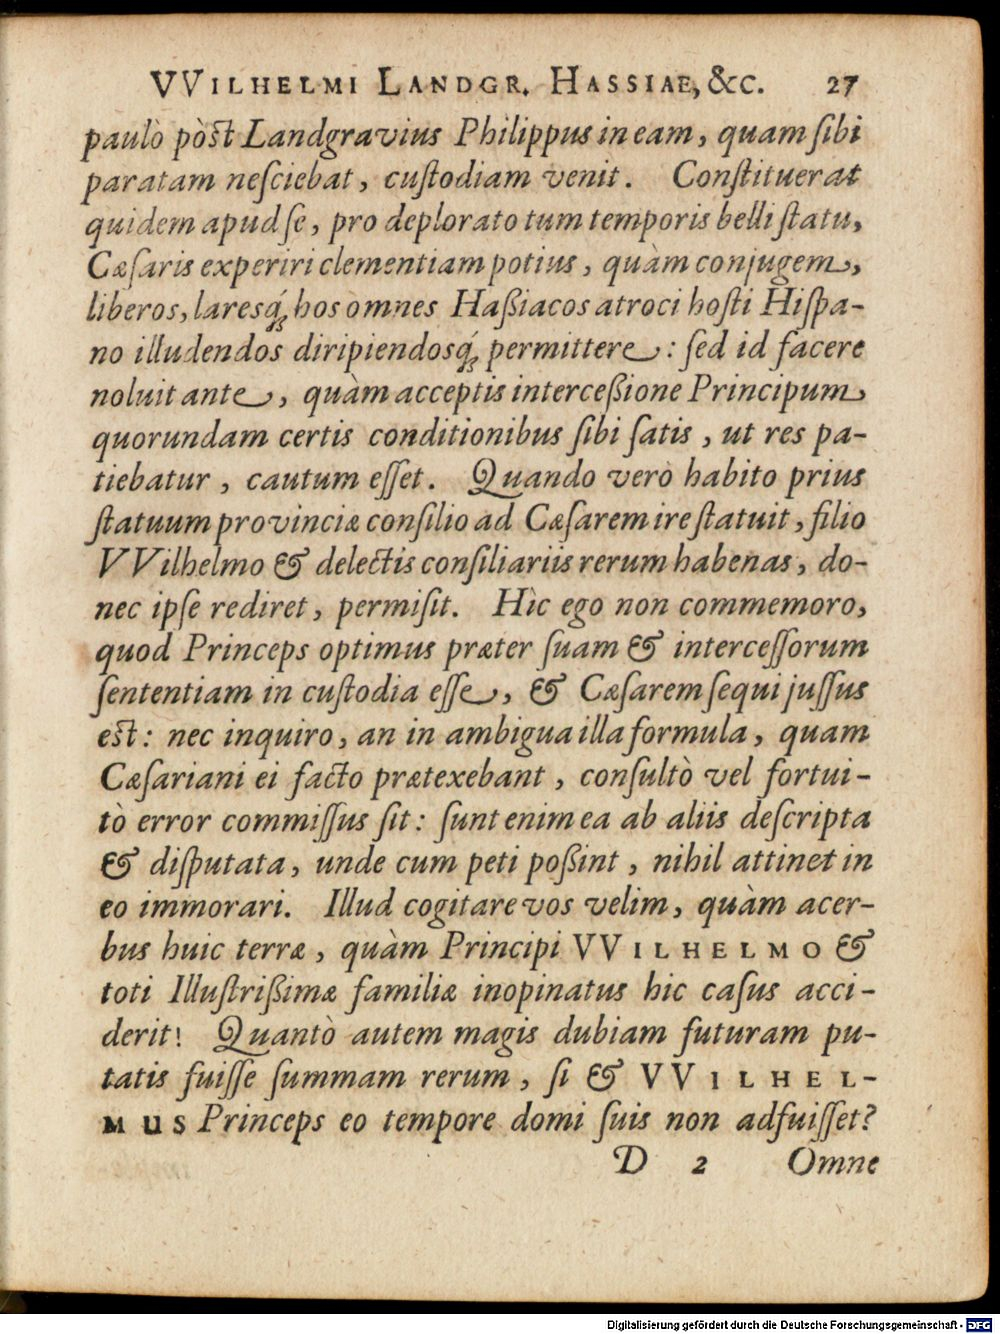 VVILHELMI LANDGR. HASSIAE, &c. 27
paulò pòst Landgravius Philippus in eam, quam ſibi
paratam neſciebat, cuſtodiam venit. Conſtituerat
quidem apud ſe, pro deplorato tum temporis belli ſtatu,
Cæſaris experiri clementiam potius, quàm conjugem,
liberos, laresq́ꝫ hos omnes Haßiacos atroci hoſti Hiſpa-
no illudendos diripiendosq́ꝫ permittere: ſed id facere
noluit ante, quàm acceptis interceßione Principum
quorundam certis conditionibus ſibi ſatis, ut res pa-
tiebatur, cautum eſſet. Quando verò habito prius
ſtatuum provinciæ conſilio ad Cæſarem ire ſtatuit, filio
VVilhelmo & delectis conſiliariis rerum habenas, do-
nec ipſe rediret, permiſit. Hìc ego non commemoro,
quod Princeps optimus præter ſuam & interceſſorum
ſententiam in cuſtodia eſſe, & Cæſarem ſequi juſſus
est: nec inquiro, an in ambigua illa formula, quam
Cæſariani ei facto prætexebant, conſultò vel fortui-
tò error commiſſus ſit: ſunt enim ea ab aliis deſcripta
& diſputata, unde cum peti poßint, nihil attinet in
eo immorari. Illud cogitare vos velim, quàm acer-
bus huic terræ, quàm Principi VVILHELMO &
toti Illuſtrißimæ familiæ inopinatus hic caſus acci-
derit! Quantò autem magis dubiam futuram pu-
tatis fuiſſe ſummam rerum, ſi & VVILHEL-
MUS Princeps eo tempore domi ſuis non adfuiſſet?
D 2 Omne
Digitalisierung gefördert durch die Deutsche Forschungsgemeinschaft - DFG